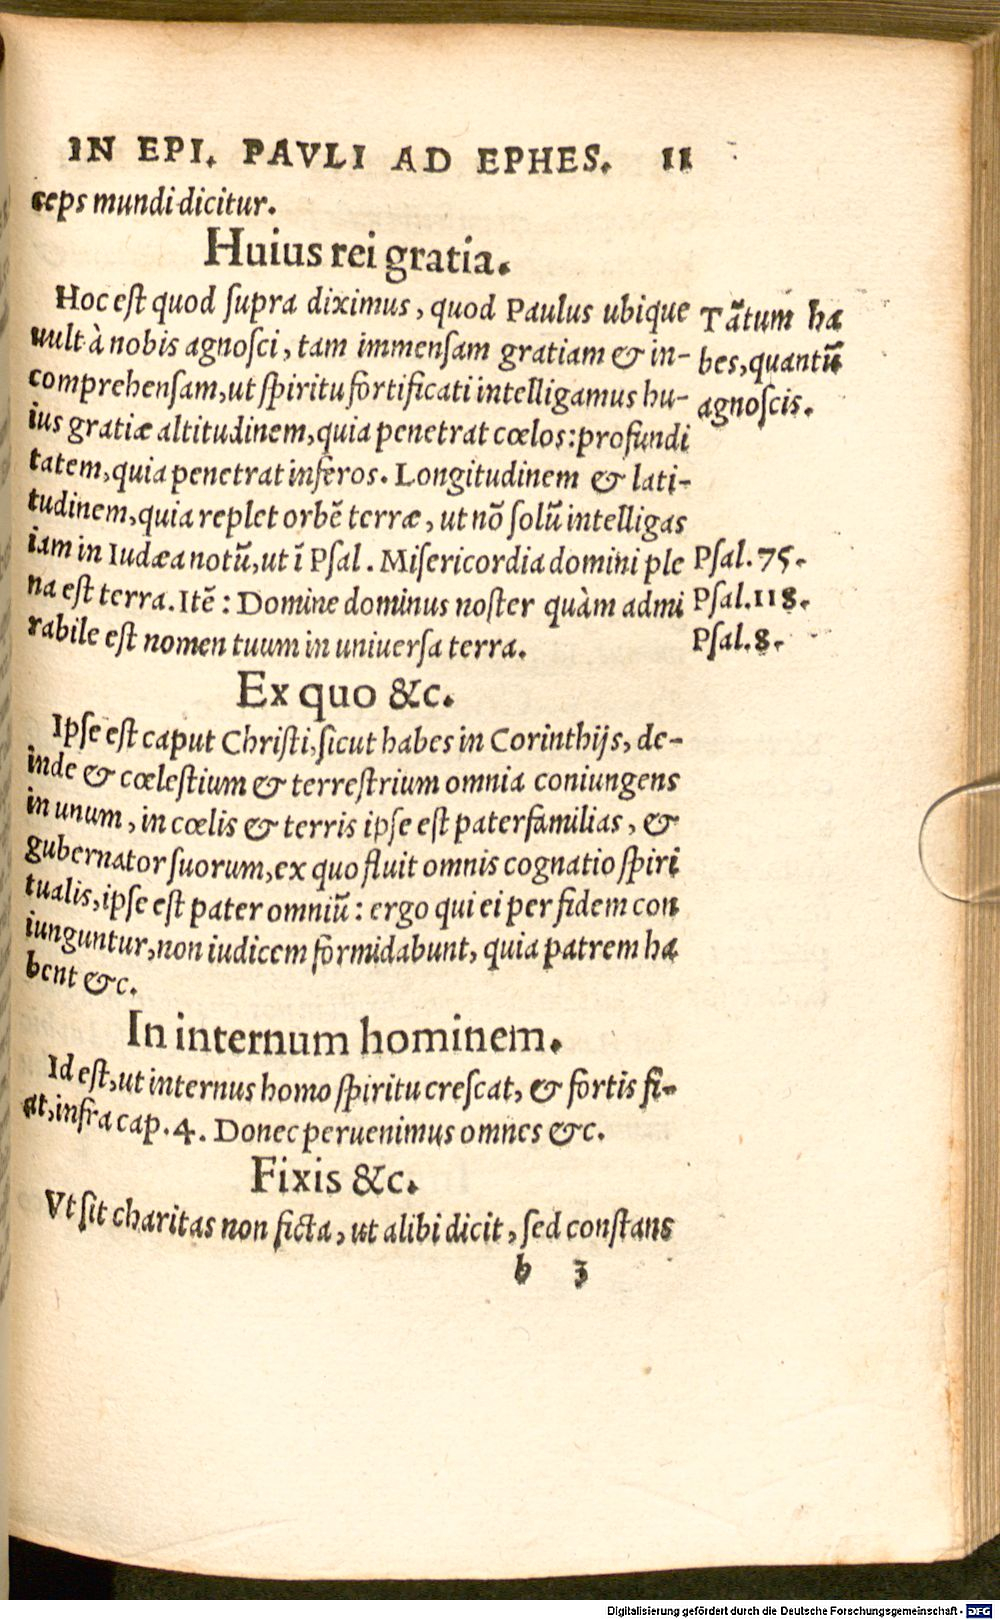 IN EPI. PAVLI AD EPHES. 11
ceps mundi dicitur.
Huius rei gratia.
Hoc est quod supra diximus, quod Paulus ubique
uult à nobis agnosci, tam immensam gratiam & in-
comprehensam, ut spiritu fortificati intelligamus hu-
ius gratiæ altitudinem, quia penetrat cœlos: profundi
tatem, quia penetrat inferos. Longitudinem & lati-
tudinem, quia replet orbẽ terræ, ut nõ solũ intelligas
iam in Iudæa notũ, ut ĩ Psal. Misericordia domini ple
na est terra. Itẽ: Domine dominus noster quàm admi
rabile est nomen tuum in uniuersa terra.
Tãtum ha
bes, quantũ
agnoscis.
Psal. 75.
Psal. 118.
Psal. 8.
Ex quo &c.
Ipse est caput Christi, sicut habes in Corinthijs, de-
inde & cœlestium & terrestrium omnia coniungens
in unum, in cœlis & terris ipse est paterfamilias, &
gubernator suorum, ex quo fluit omnis cognatio spiri
tualis, ipse est pater omniũ: ergo qui ei per fidem con
iunguntur, non iudicem formidabunt, quia patrem ha
bent &c.
In internum hominem.
Id est, ut internus homo spiritu crescat, & fortis fi-
at, infra cap. 4. Donec peruenimus omnes &c.
Fixis &c.
Vt sit charitas non ficta, ut alibi dicit, sed constans
b 3
Digitalisierung gefördert durch die Deutsche Forschungsgemeinschaft - DFG